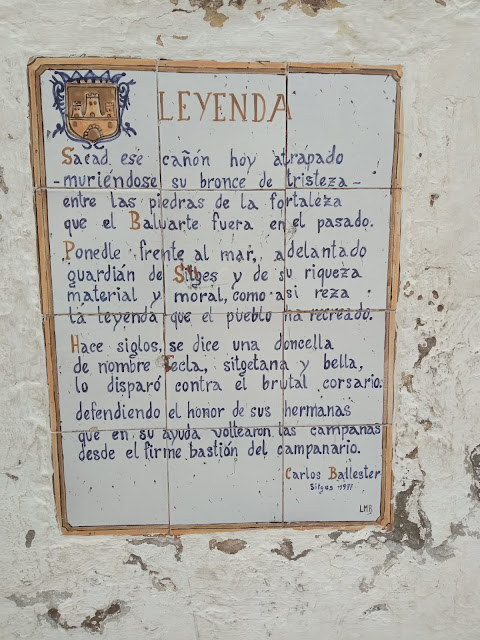 LEYENDA
Sacad, ese cañón hoy atrapado
-muriéndose su bronce de tristeza-
entre las piedras de la fortaleza
que el Baluarte fuera en el pasado.
Ponedle frente al mar, adelantado
guardián de Sitges y de su riqueza
material y moral, como asi reza
la leyenda que el pueblo ha recreado.
Hace siglos, se dice una doncella
de nombre Tecla, sitgetana y bella,
lo disparó contra el brutal corsario.
defendiendo el honor de sus hermanas
que en su ayuda voltearon las campanas
desde el firme bastión del campanario.
Carlos Ballester
Sitges 1977
LMB